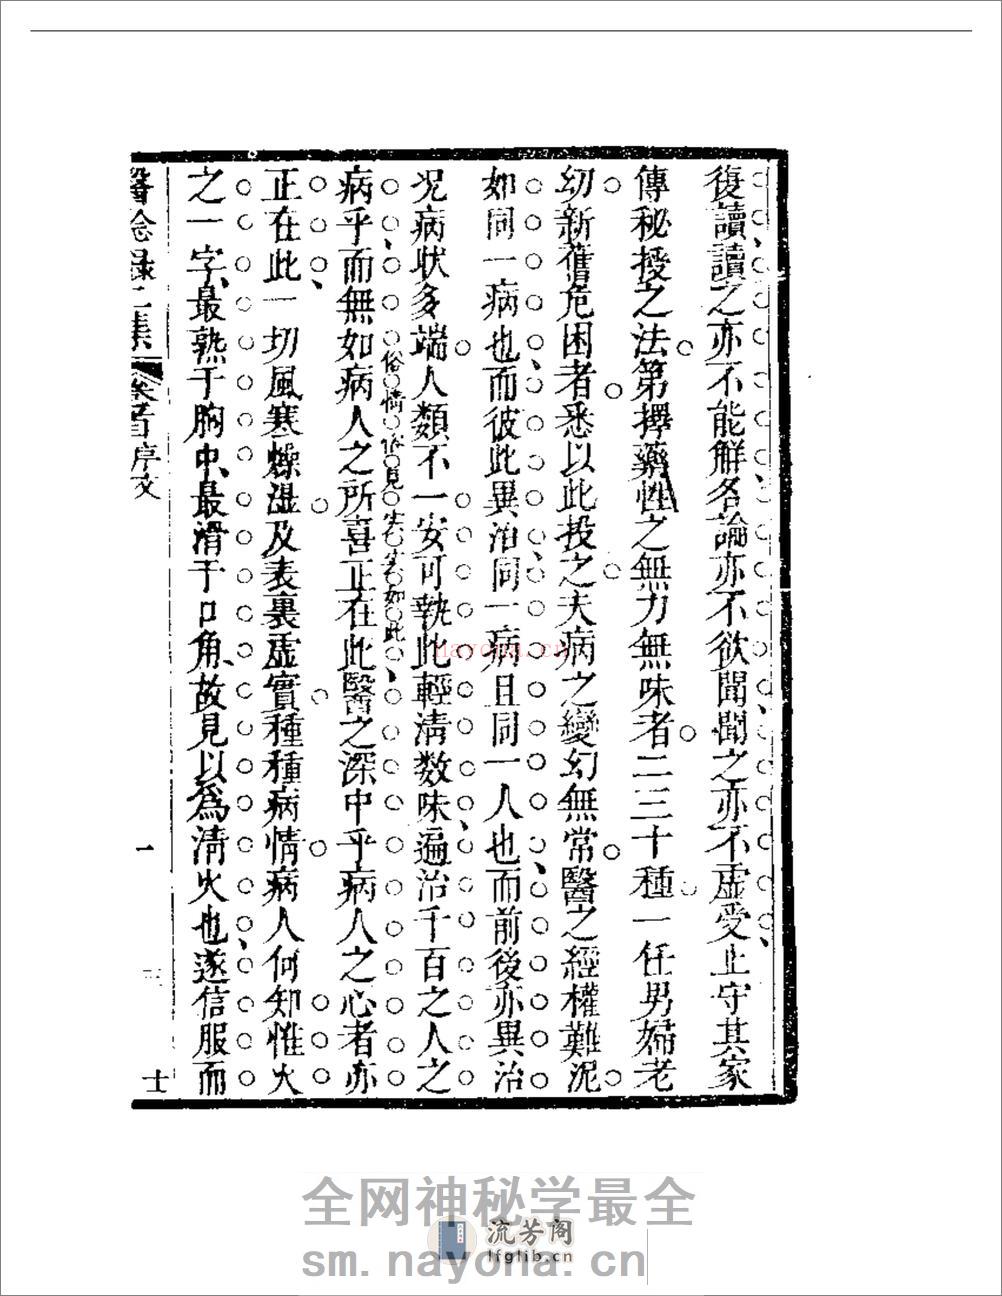 復讀讀之亦不能解名論亦不欲聞聞之亦不虛受止守其家
傳秘授之法第擇藥性之無力無味者二三十種一任男婦老
幼新舊危困者悉以此投之夫病之變幻無常醫之經權難泥
如同一病也而彼此異治同一病且同一人也而前後亦異治
況病狀多端人類不一安可執此輕清数味遍治千百之人之
病乎而無如病人之所喜正在此醫之深中乎病人之心者亦
俗情俗見
如此
正在此一切風寒燥湿及表裏虛實種種病情病人何知惟火
之一字最熟于胸中最滑于口角故見以為清火也遂信服而
醫
録二集
卷首序文
一
三
士
nayona.cn
全网神秘学最全
流芳阁
lfglib.cn
sm.nayona.cn